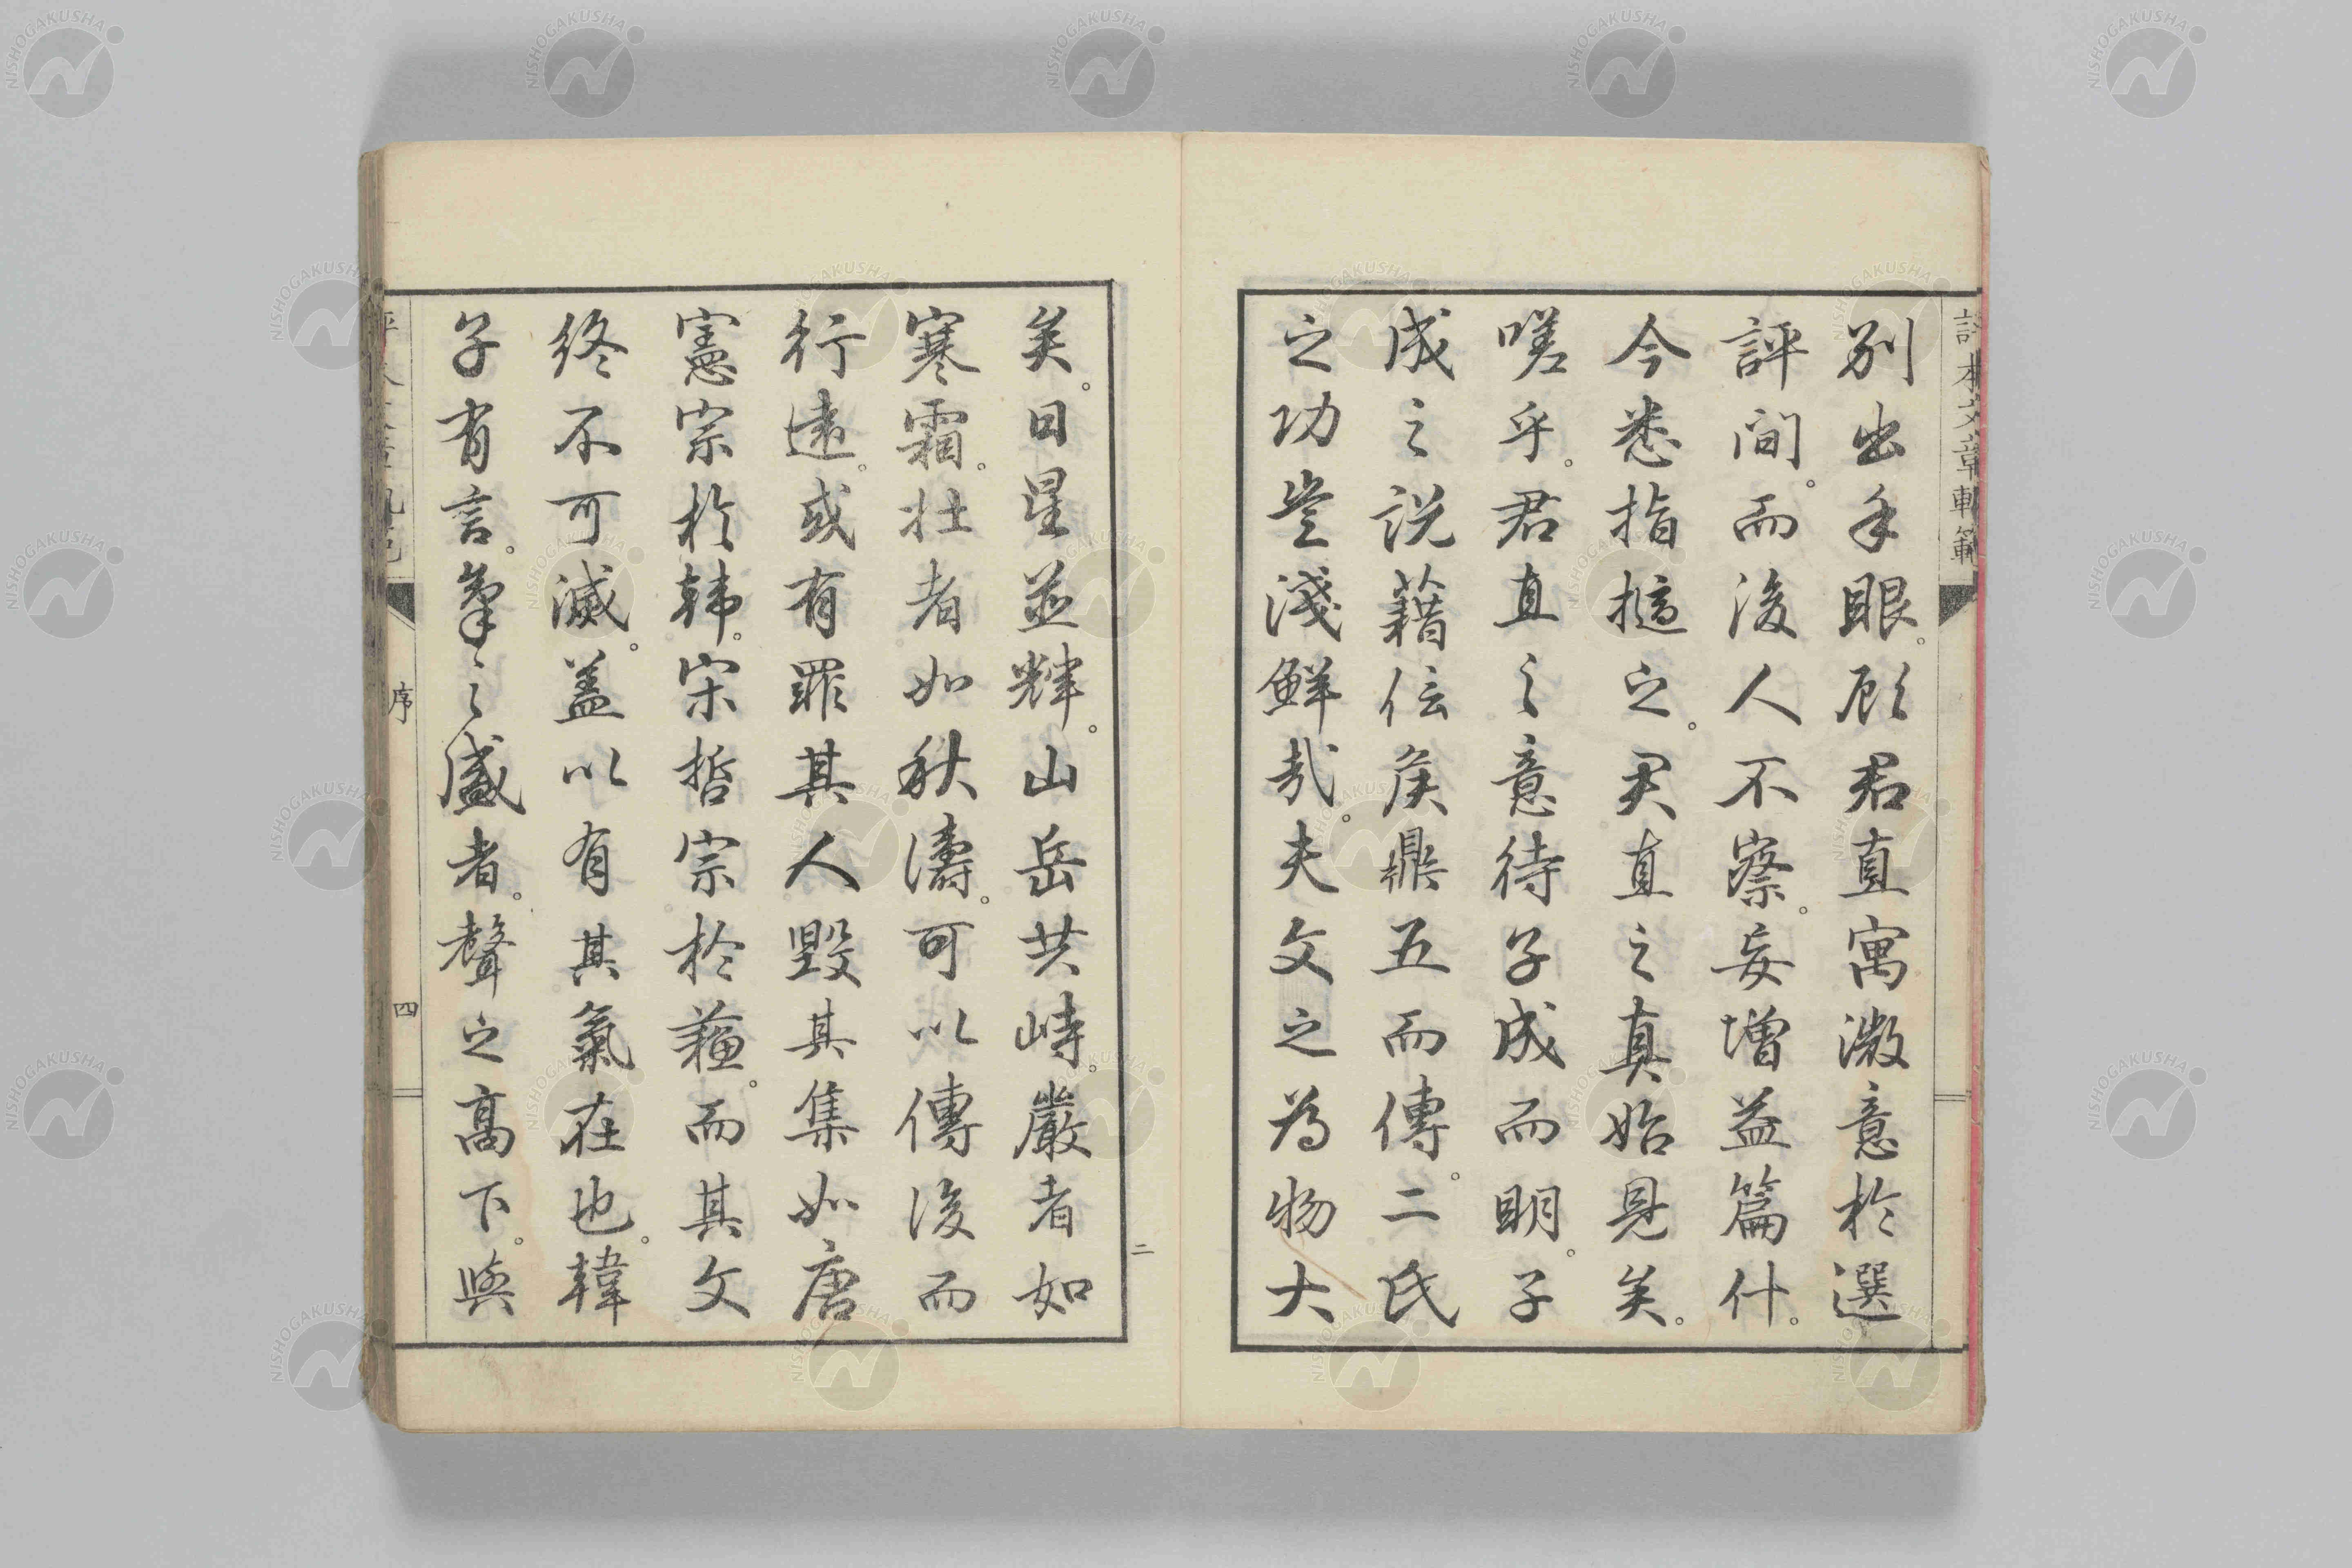 評本文章軌範
別出手眼。顧君直寓微意於選
評間。而後人不察。妄增益篇什。
今悉指擿之。君直之真始見矣。
嗟乎。君直之意待子成而明。子
成之說藉伝矦鼎五而傳。二氏
之功豈淺鮮哉。夫文之為物大
二
矣。日星並輝。山岳共峙。嚴者如
寒霜。壯者如秋濤。可以傳後而
行遠。或有罪其人毀其集如唐
憲宗於韩。宋哲宗於蘓。而其文
終不可滅。盖以有其氣在也。韓
子有言。氣之盛者。聲之高下。與
序
四
NISHOGAKUSHA